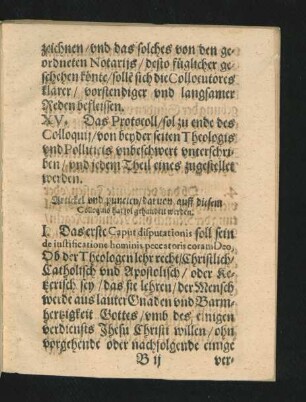 zeichnen / vnd das solches von den ge-
ordneten Notarijs / desto füglicher ge-
schehen könte / solle sich die Collocutores
klarer / vorstendiger vnd langsamer
Reden befleissen.
XV. Das Protocoll / sol zu ende des
Colloquij / von beyder seiten Theologis
vnd Politicis vnbeschwert vnterschri-
ben / vnd jedem Theil eines zugestellet
werden.
Artickel vnd puncten / dauon auff diesem
Colloquio sol gehandelt werden.
I. Das erste Caput disputationis soll sein
de iustificatione hominis peccatoris coram Deo,
Ob der Theologen lehr recht / Christlich /
Catholisch vnd Apostolisch / oder Ke-
tzerisch sey / das sie lehren / der Mensch
werde aus lauter Gnaden vnd Barm-
hertzigkeit Gottes / vmb des einigen
verdiensts Jhesu Christi willen / ohn
vorgehende oder nachfolgende einige
B ij ver-